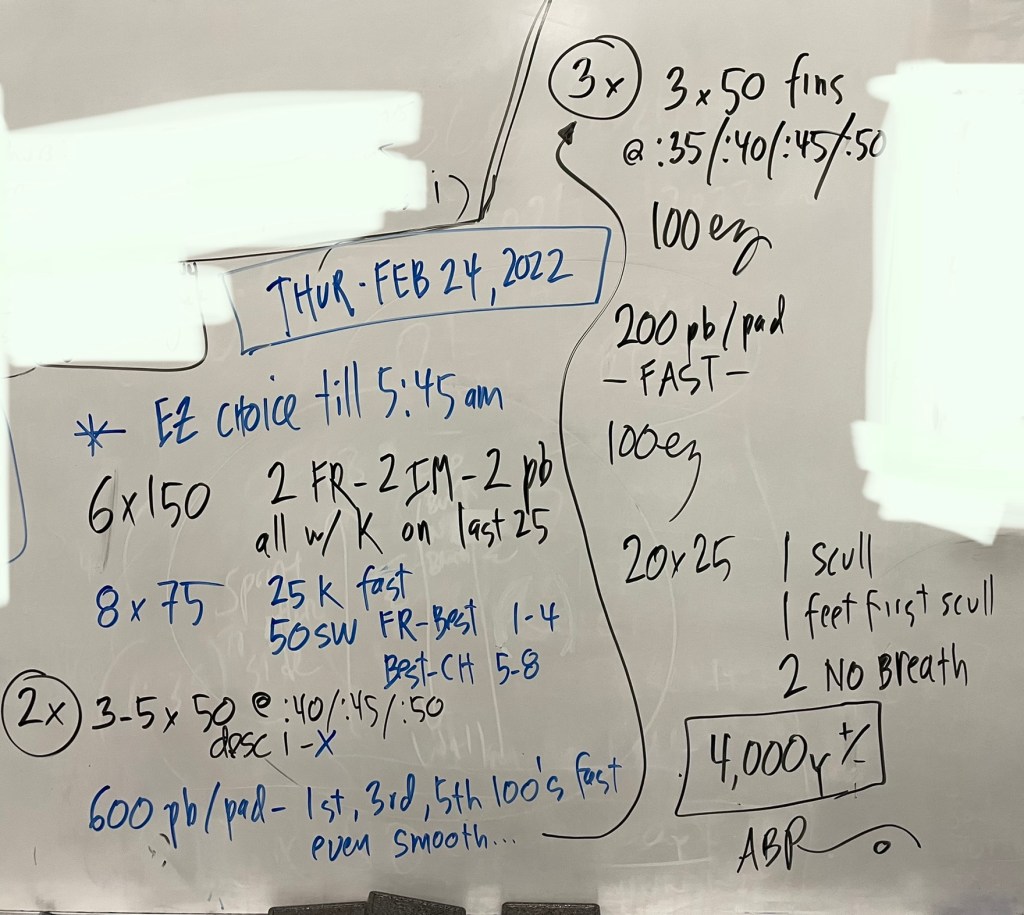 THUR - FEB 24, 2022
* EZ CHOICE till 5:45 am
6 x 150 2 FR - 2 IM - 2 pb
all w/ K on last 25
8 x 75 25 K fast
50 SW FR-Best 1-4
Best-CH 5-8
2x 3-5 x 50 @ :40/:45/:50
desc 1-X
600 pb/pad - 1st, 3rd, 5th 100's fast
even smooth...
3x 3 x 50 fins
@ :35/:40/:45/:50
100 ez
200 pb/pad
- FAST -
100 ez
20 x 25 1 scull
1 feet first scull
2 NO Breath
4,000y +/-
ABP